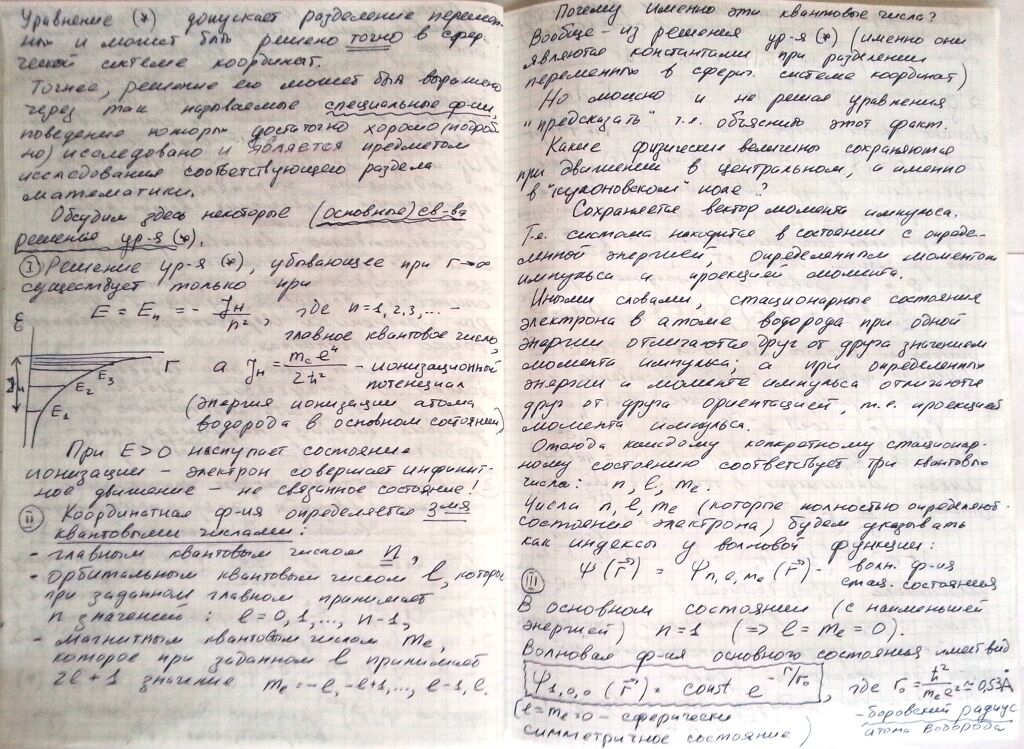 Уравнение (*) допускает разделение перемен-
ных и может быть решено точно в сфер-
ческой системе координат.
Точнее, решение его может быть выражено
через так называемые специальные ф-ии,
поведение которых достаточно хорошо (подроб-
но) исследовано и является предметом
исследования соответствующего раздела
математики.
Обсудим здесь некоторые (основные) св-ва
решения ур-я (*).
I Решение ур-я (*), убывающее при r→∞
существует только при
E = Eₙ = - J_H/n², где n=1,2,3,... -
главное квантовое число,
а J_H = mₑe⁴/2ħ² - ионизационной
потенциал
(энергия ионизации атома
водорода в основном состоянии)
ε
r
J_H
E₁
E₂
E₃
При E>0 наступает состояние
ионизации - электрон совершает инфинит-
ное движение - не связанное состояние!
II Координатная ф-ия определяется 3-мя
квантовыми числами:
- главным квантовым числом n,
- орбитальным квантовым числом l, которое
при заданном главном принимает
n значений: l=0,1,..., n-1,
- магнитным квантовым числом mₑ,
которое при заданном l принимает
2l+1 значение mₑ=-l,-l+1,...,l-1,l.
Почему именно эти квантовые числа?
Вообще - из решения ур-я (*) (именно они
являются константами при разделении
переменных в сферич. система координат)
Но можно и не решая уравнения
"предсказать" т.е. объяснить этот факт.
Какие физические величины сохраняются
при движении в центральном, а именно
в "кулоновском" поле?
Сохраняется вектор момента импульса.
Т.е. система находится в состоянии с опреде-
лённой энергией, определённым моментом
импульса и проекцией момента.
Иными словами, стационарные состояния
электрона в атоме водорода при одной
энергии отличаются друг от друга значением
момента импульса; а при определённых
энергии и моменте импульса отличаются
друг от друга ориентацией, т.е. проекцией
момента импульса.
Отсюда каждому конкретному стационар-
ному состоянию соответствует три квантовых
числа: n, l, mₑ.
Числа n, l, mₑ (которые полностью определяют
состояние электрона) будем указывать
как индексы у волновой функции:
ψ(r⃗) = ψ n,l,mₑ (r⃗) - волн. ф-ия
стац. состояния
III
В основном состоянии (с наименьшей
энергией) n=1 (=> l=mₑ=0).
Волновая ф-ия основного состояния имеет вид
ψ₁,₀,₀ (r⃗) = const e^(-r/r₀), где r₀ = ħ²/mₑe² ≃ 0,53Å
- боровский радиус
атома водорода
(l=mₑ=0 - сферически
симметричное состояние)